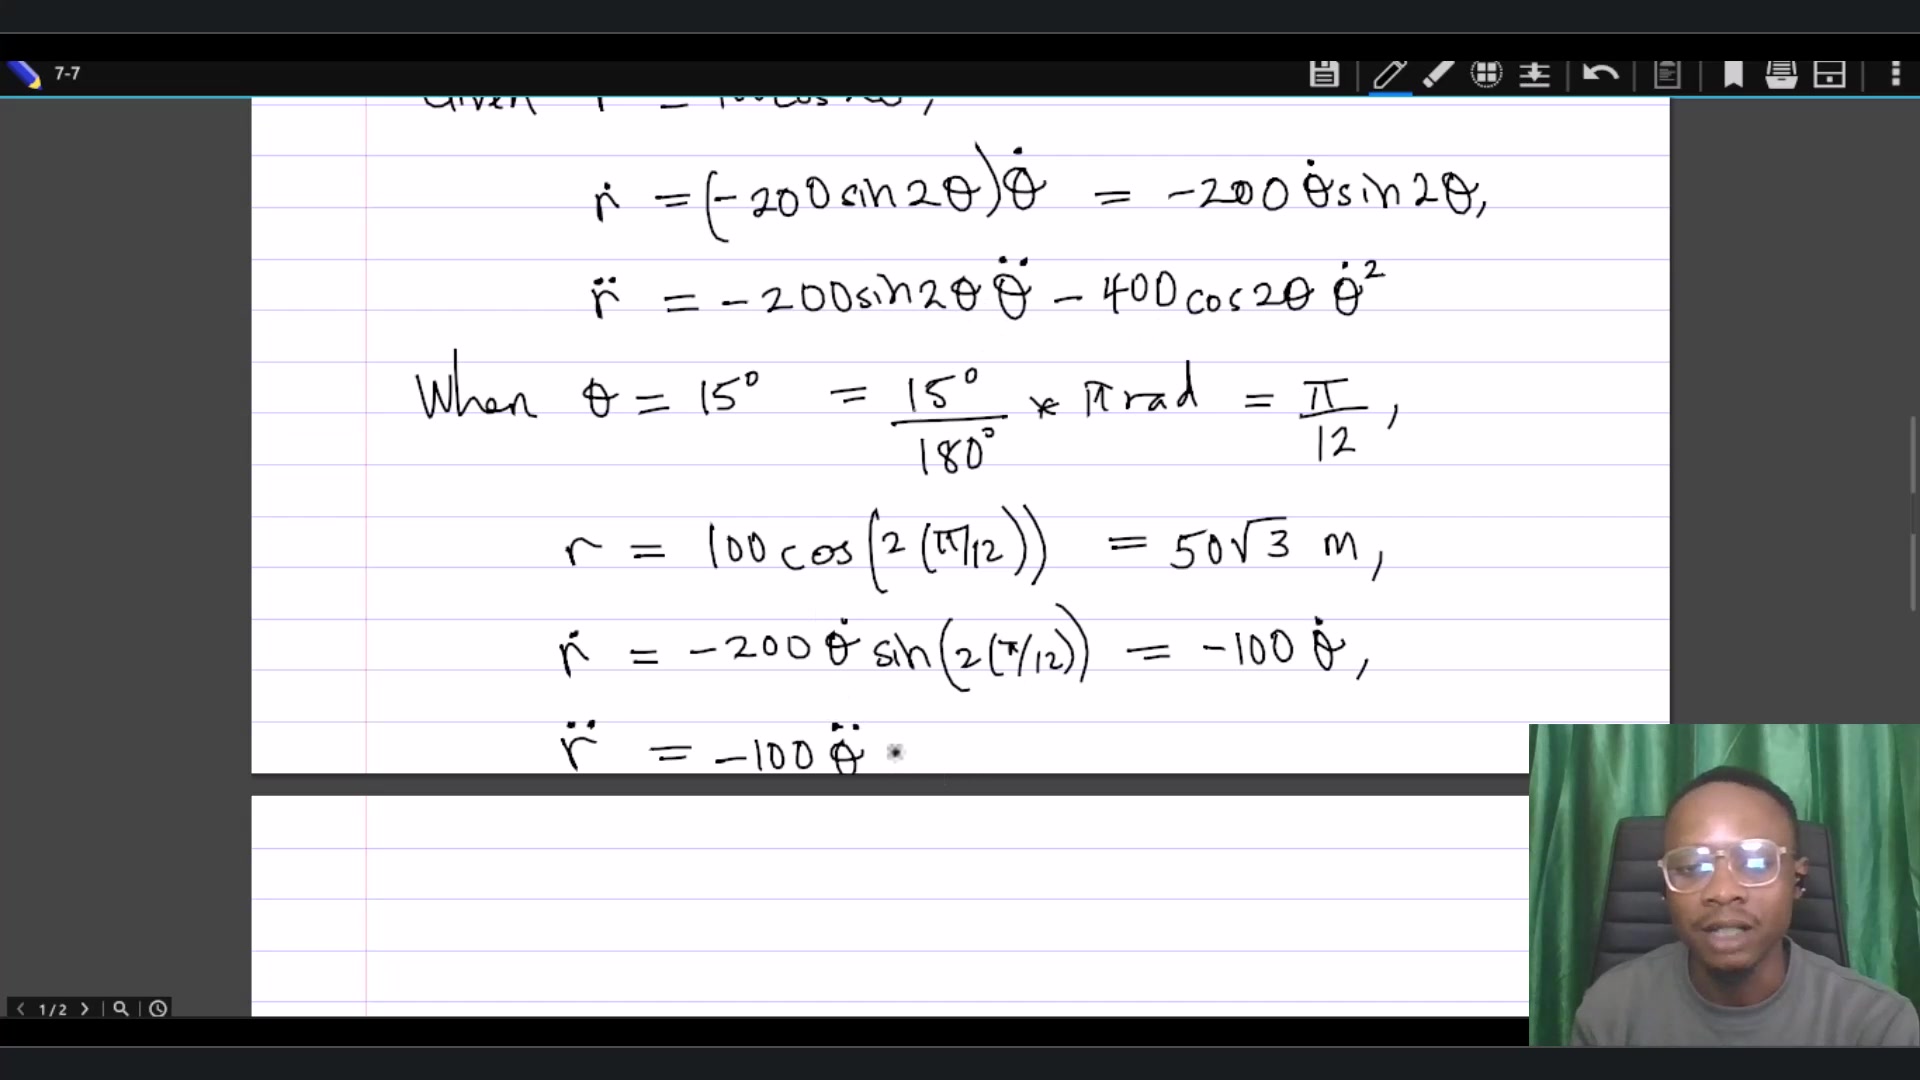 7-7
Given r = 100cos2θ,
ṙ = (-200sin2θ)θ̇ = -200θ̇sin2θ,
r̈ = -200sin2θ θ̈ - 400cos2θ θ̇²
When θ = 15° = 15°/180° * π rad = π/12,
r = 100cos(2(π/12)) = 50√3 m,
ṙ = -200θ̇ sin(2(π/12)) = -100θ̇,
r̈ = -100θ̈
1/2